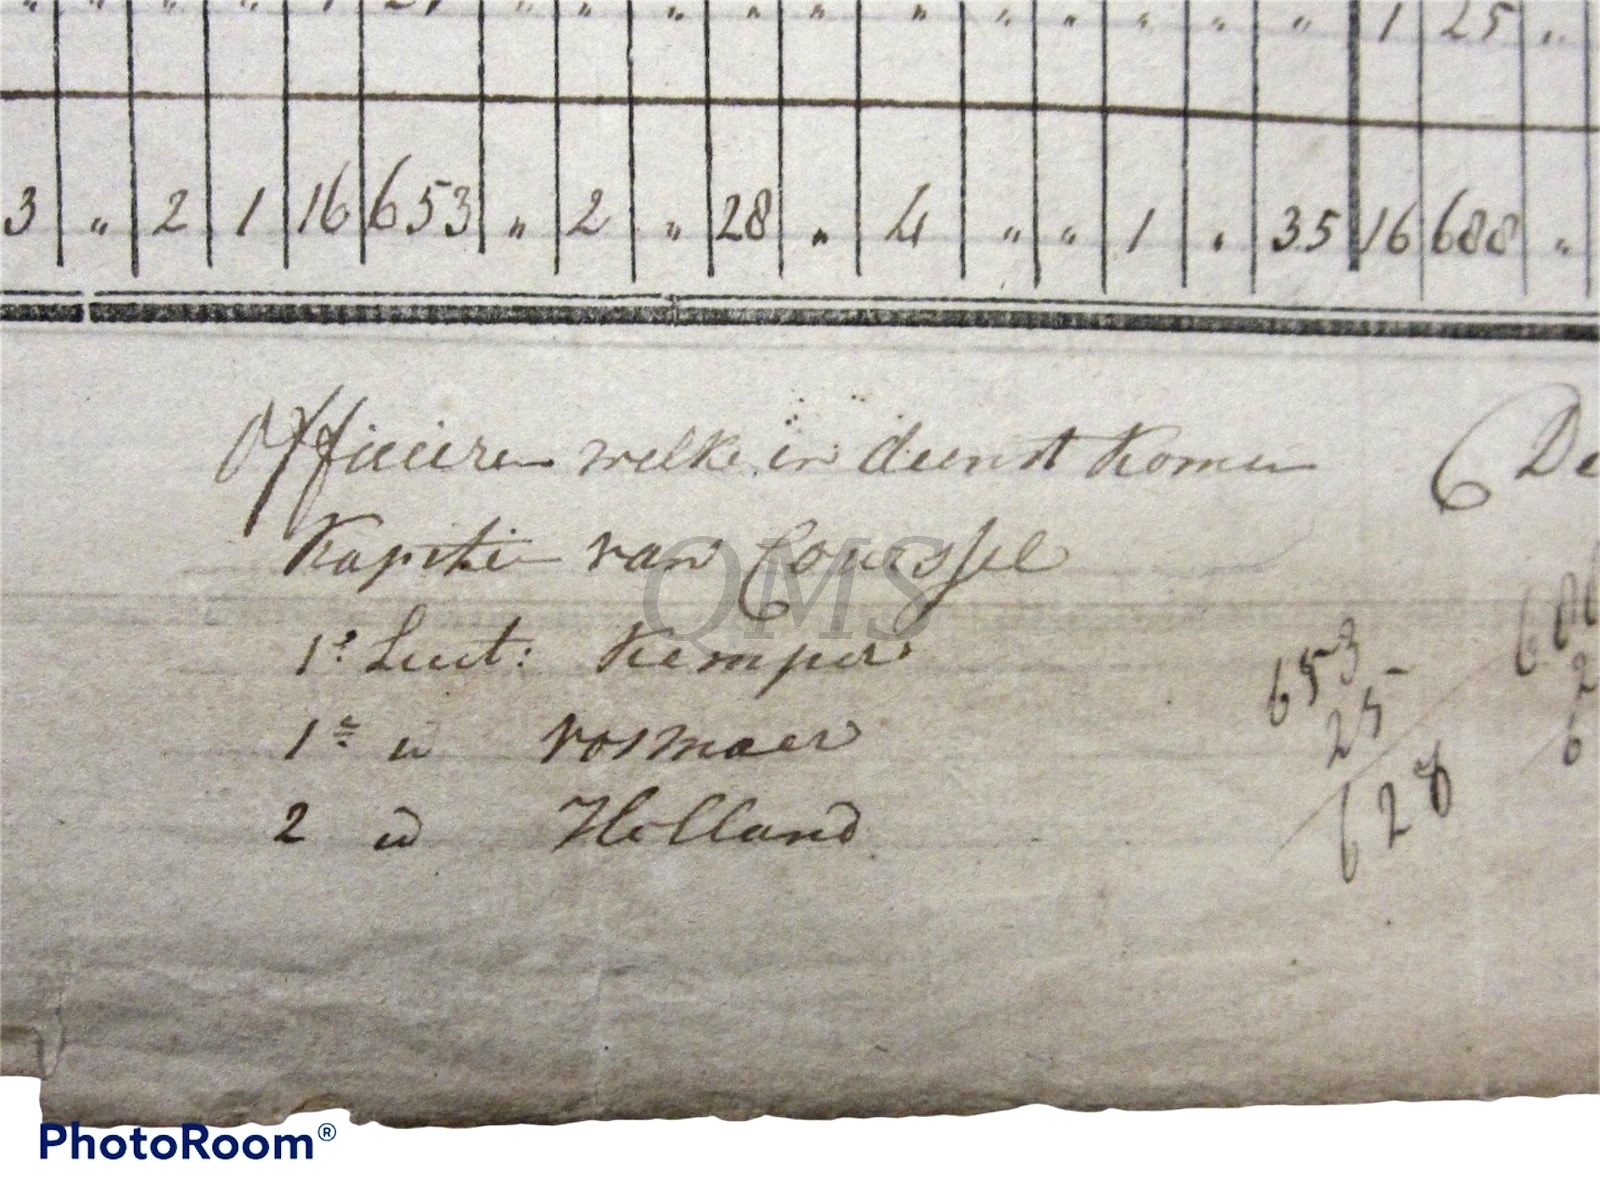 " " " " 1 " " " " " " " " " " " " 1 25 "
3 " 2 1 16 653 " 2 " 28 " 4 " " 1 " 35 16 688 "
Officieren welke in dienst komen
6 De
Kapitein van Courssel
1e Luit: Kemper
1e id Vosmaer
2 id Holland
653
25-
628
QMS
PhotoRoom®